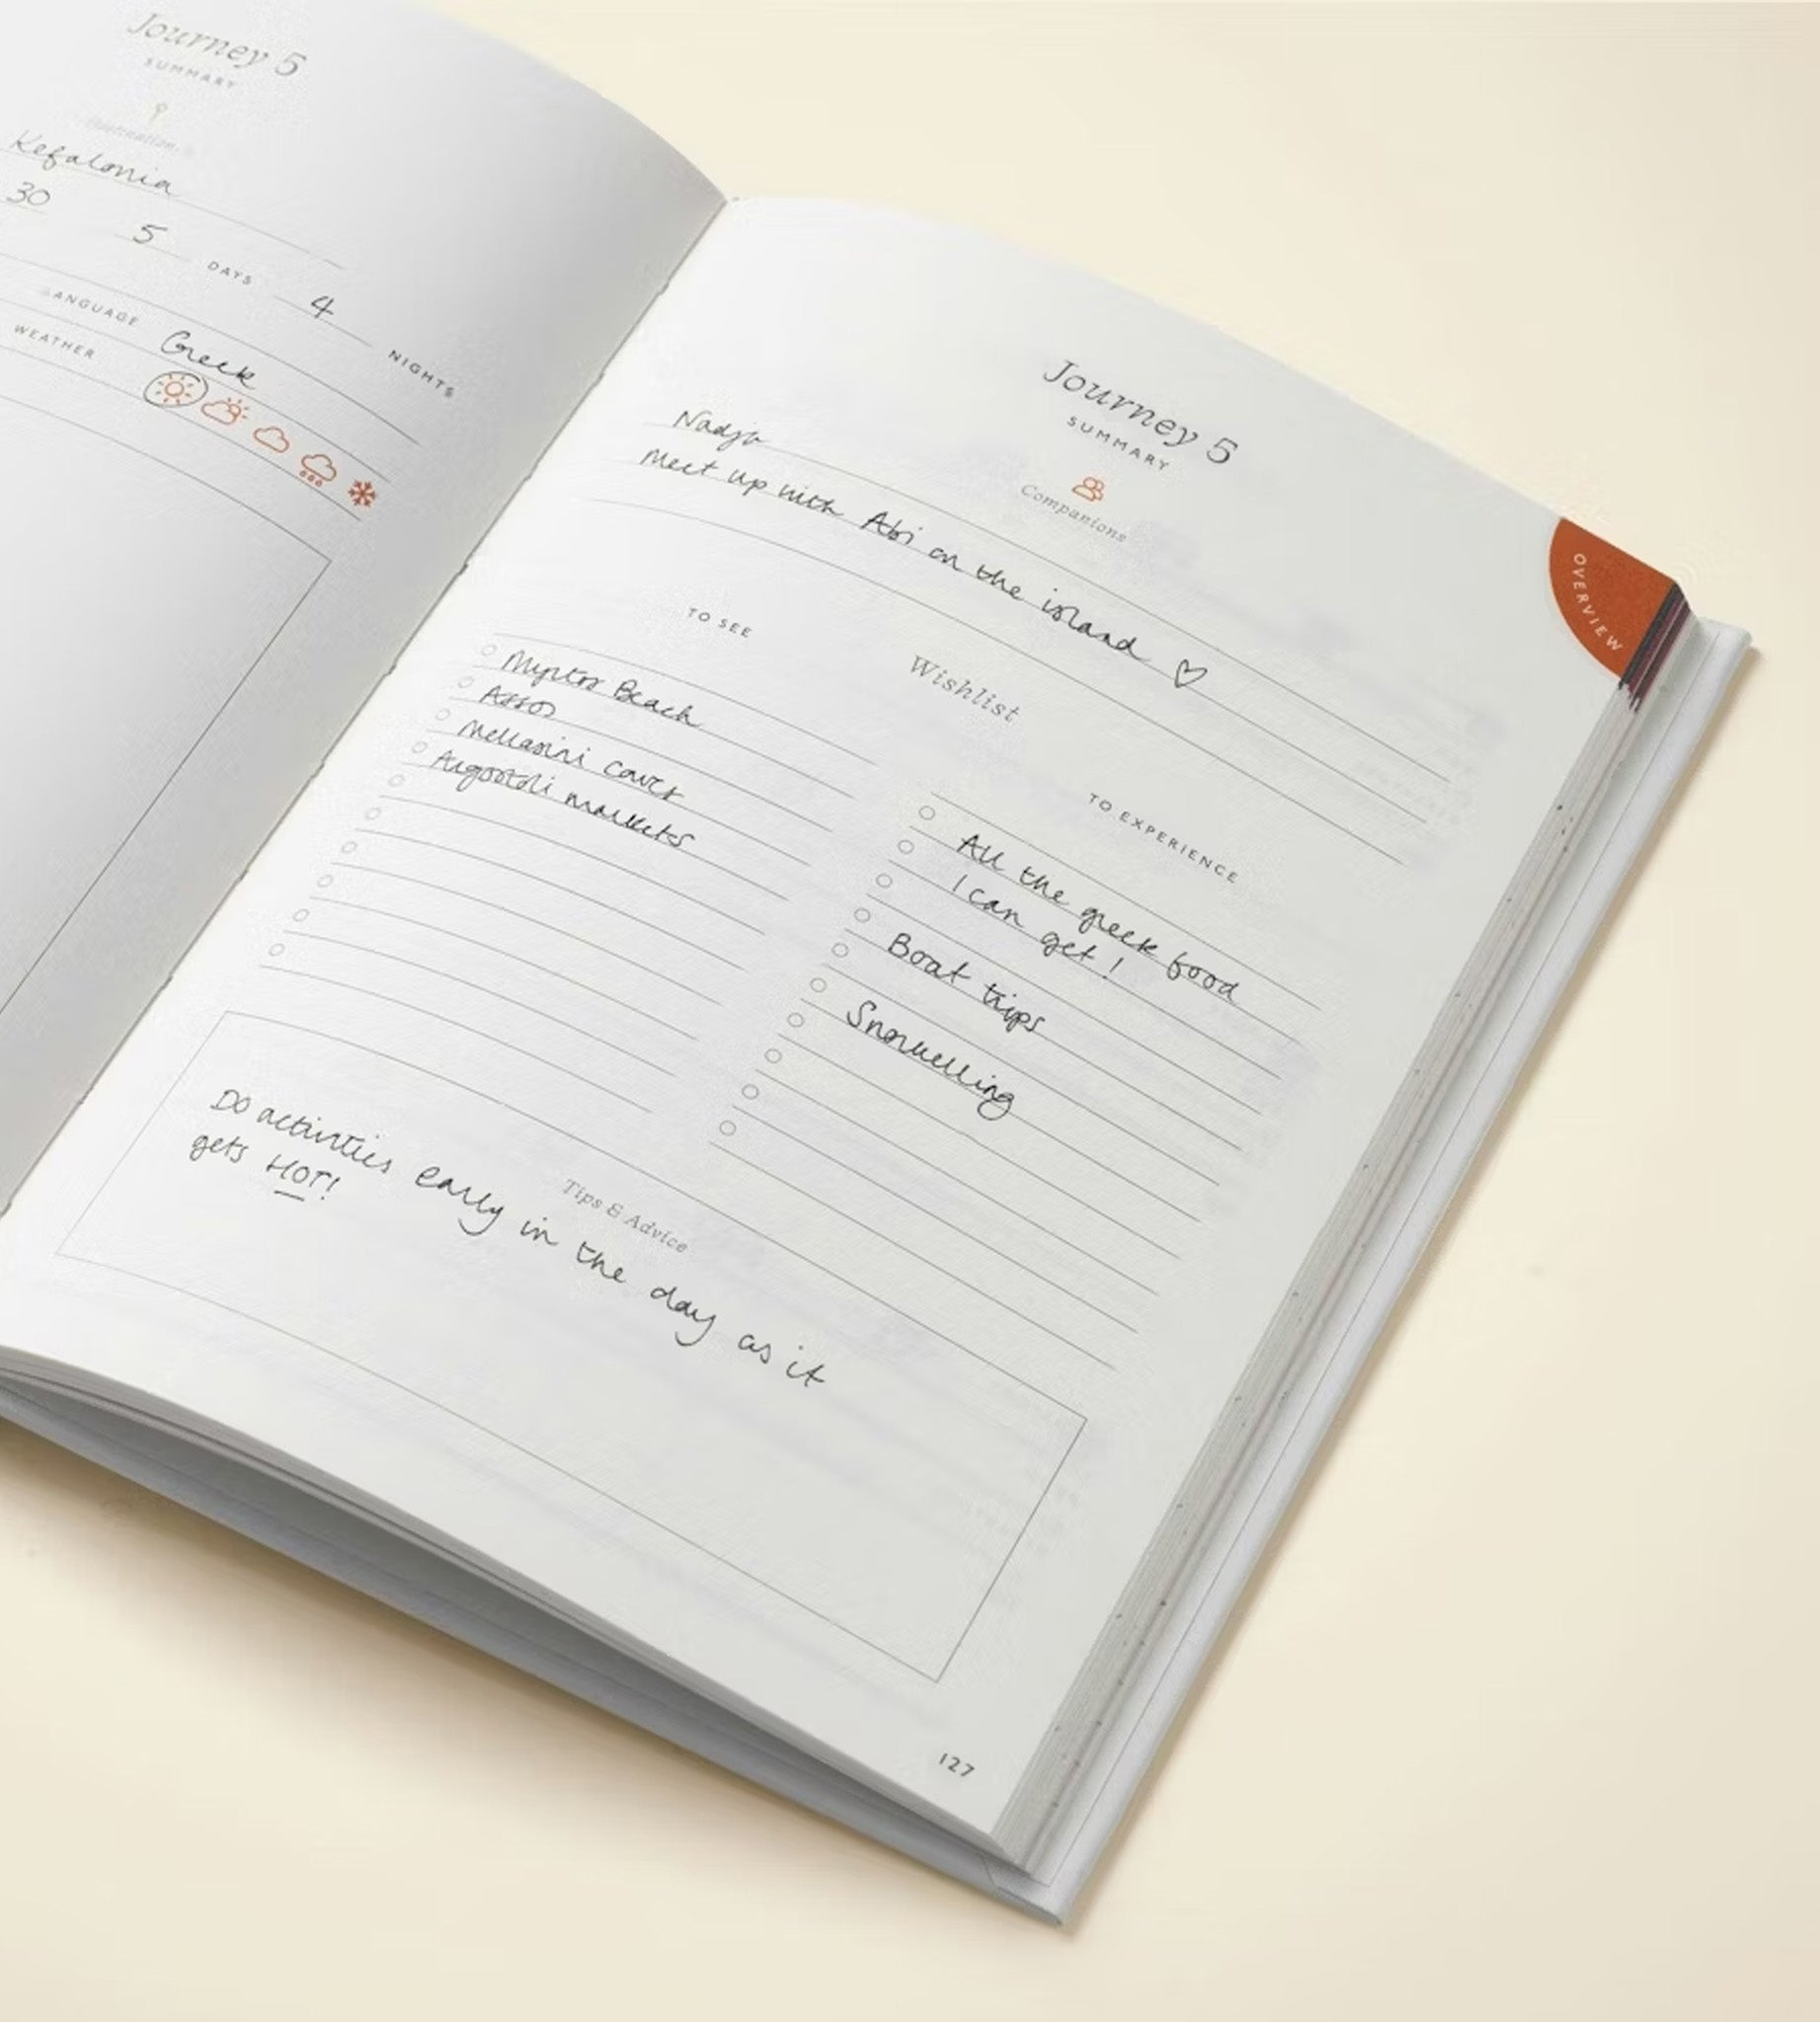 Journey 5
SUMMARY
Destination
Kefalonia
30
5 DAYS 4 NIGHTS
LANGUAGE Greek
WEATHER
Journey 5
SUMMARY
Companions
Nadja
Meet up with Abi on the island ♡
Wishlist
TO SEE
Myrtos Beach
Assos
Mellasini caves
Argostoli markets
TO EXPERIENCE
All the greek food
I can get!
Boat trips
Snorkelling
Tips & Advice
Do activities early in the day as it
gets HOT!
127
OVERVIEW